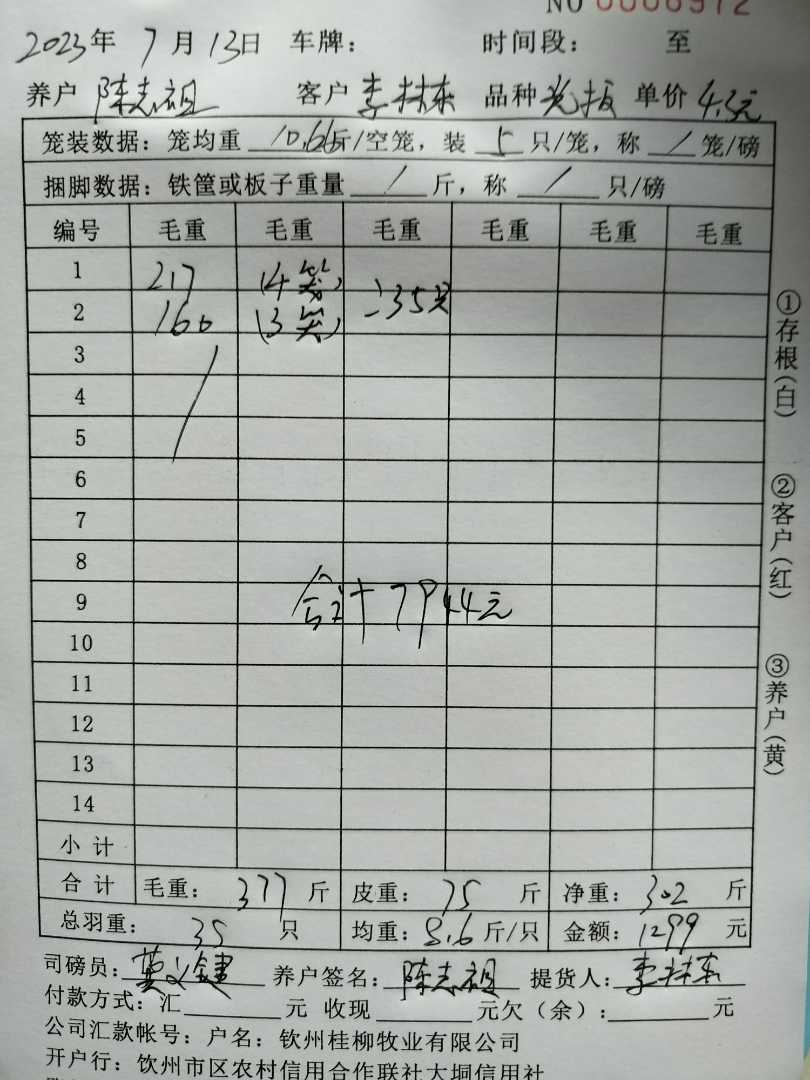 NO 0006972
2023年 7月13日 车牌: 时间段: 至
养户 陈志祖 客户 李林东 品种 单价 4.3元
笼装数据: 笼均重 10.66斤/空笼, 装 5 只/笼, 称 / 笼/磅
捆脚数据: 铁筐或板子重量 / 斤, 称 / 只/磅
编号 毛重 毛重 毛重 毛重 毛重 毛重
1 217 (4笼)
2 160 (3笼) 35只
3
4
5
6
7
8
9 合计 7944元
10
11
12
13
14
小计
合计 毛重: 377 斤 皮重: 75 斤 净重: 302 斤
总羽重: 35 只 均重: 8.6 斤/只 金额: 1299 元
司磅员: 养户签名: 陈志祖 提货人: 李林东
付款方式: 汇 元 收现 元欠(余): 元
公司汇款帐号: 户名: 钦州桂柳牧业有限公司
开户行: 钦州市区农村信用合作联社大垌信用社
①存根(白)
②客户(红)
③养户(黄)